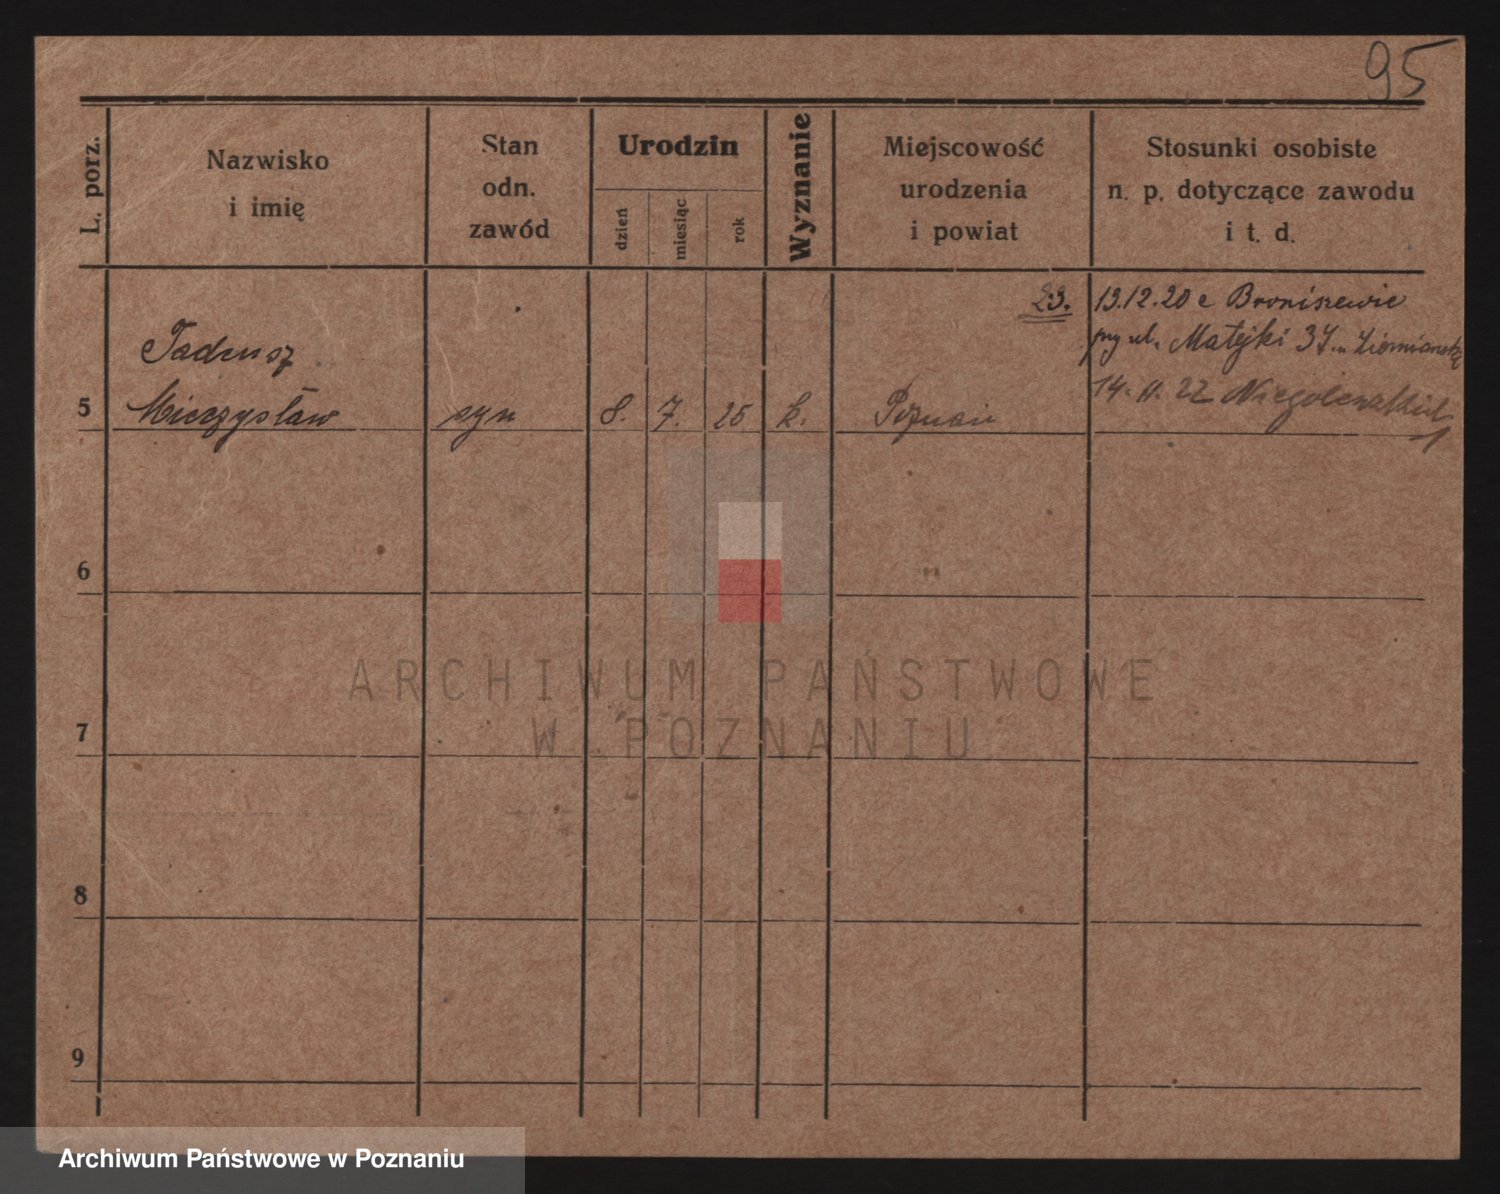 95
L. porz.
Nazwisko
i imię
Stan
odn.
zawód
Urodzin
dzień
miesiąc
rok
Wyznanie
Miejscowość
urodzenia
i powiat
Stosunki osobiste
n. p. dotyczące zawodu
i t. d.
23. 13.12.20
ul. Matejki 37
14. 11. 22
Tadeusz
5 Mieczysław syn 8. 7. 25 k. Poznań
6
7
8
9
ARCHIWUM PAŃSTWOWE
W POZNANIU
Archiwum Państwowe w Poznaniu